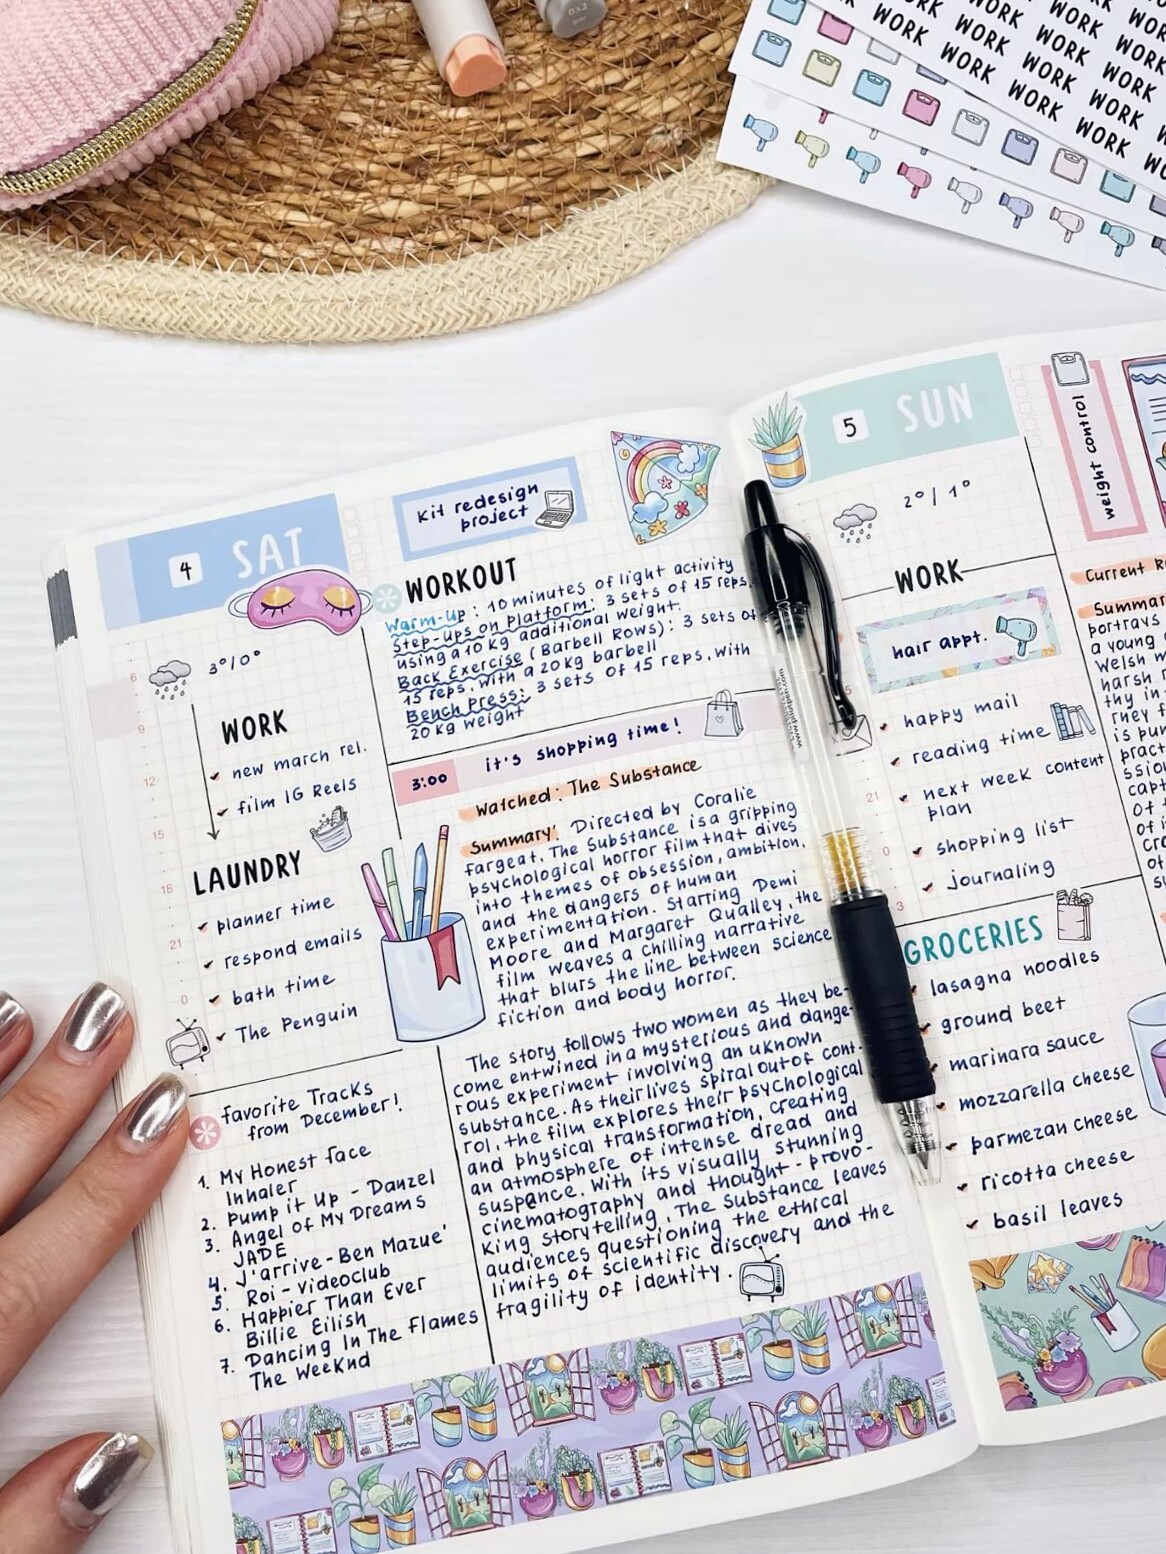 032
WORK WORK WORK WORK
WORK WORK WORK WORK
WORK WORK WORK WORK
WORK WORK WORK
4 SAT
Kit redesign
project
3°/0°
WORK
new march rel.
film IG Reels
LAUNDRY
planner time
respond emails
bath time
The Penguin
6
9
12
15
18
21
0
favorite Tracks
from December!
1. My Honest face
Inhaler
2. Pump it Up - Danzel
3. Angel of My Dreams
JADE
4. J'arrive - Ben Mazue'
5. Roi - Videoclub
6. Happier Than Ever
Billie Eilish
7. Dancing In The Flames
The Weeknd
WORKOUT
Warm-Up: 10 minutes of light activity
Step-Ups on Platform: 3 sets of 15 reps,
using a 10 kg additional weight.
Back Exercise (Barbell Rows): 3 sets of
15 reps, with a 20 kg barbell
Bench Press: 3 sets of 15 reps, with
20 kg weight
3:00 it's shopping time!
Watched: The Substance
Summary: Directed by Coralie
fargeat, The Substance is a gripping
psychological horror film that dives
into themes of obsession, ambition,
and the dangers of human
experimentation. Starring Demi
Moore and Margaret Qualley, the
film weaves a chilling narrative
that blurs the line between science
fiction and body horror.
The story follows two women as they be-
come entwined in a mysterious and dange-
rous experiment involving an uknown
substance. As their lives spiral out of cont-
rol, the film explores their psychological
and physical transformation, creating
an atmosphere of intense dread and
suspense. With its visually stunning
cinematography and thought-provo-
king storytelling, The Substance leaves
audiences questioning the ethical
limits of scientific discovery and the
fragility of identity.
www.pilotpen.com
5 SUN
2°/1°
WORK
hair appt.
happy mail
reading time
next week content
plan
shopping list
journaling
21
0
3
GROCERIES
lasagna noodles
ground beet
marinara sauce
mozzarella cheese
parmezan cheese
ricotta cheese
basil leaves
weight control
Current R
Summar
portrays
a young
Welsh m
harsh r
thy in
They f
is pun
pract
ssion
capt
of t
of i
cr